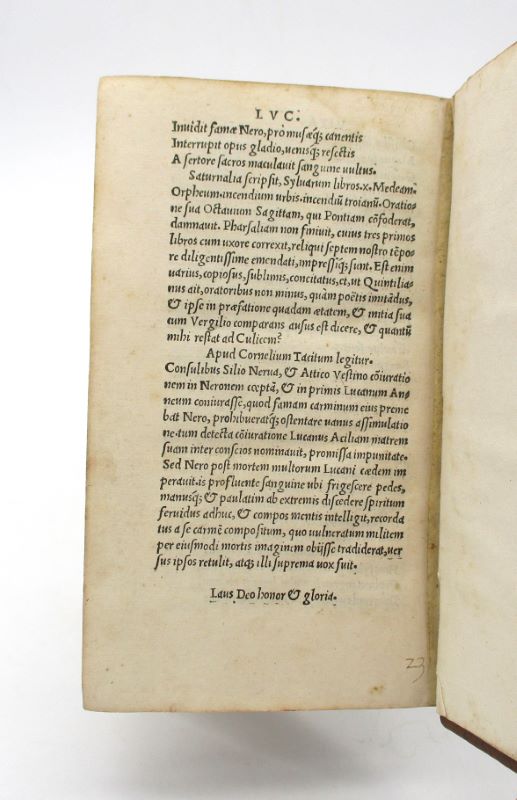 LVC.
Inuidit famæ Nero, pro musæq; canentis
Interrupit opus gladio, uenisq; resectis
A sertore sacros maculauit sanguine uultus.
Saturnalia scripsit, Syluarum libros.x. Medeam.
Orpheum. incendium urbis. incendiũ troianũ. Oratio-
ne sua Octauium Sagittam, qui Pontiam cõfoderat,
damnauit. Pharsaliam non finiuit, cuius tres primos
libros cum uxore correxit, reliqui septem nostro tẽpo-
re diligentissime emendati, impressiq; sunt. Est enim
uarius, copiosus, sublimis, concitatus, et, ut Quintilia-
nus ait, oratoribus non minus, quàm poëtis imitãdus,
& ipse in præfatione quadam ætatem, & initia sua
cum Vergilio comparans ausus est dicere, & quantũ
mihi restat ad Culicem?
Apud Cornelium Tacitum legitur.
Consulibus Silio Nerua, & Attico Vestino cõiuratio
nem in Neronem cœptã, & in primis Lucanum An-
neum coniurasse, quod famam carminum eius preme
bat Nero, prohibueratq; ostentare uanus assimulatio
ne. tum detecta cõiuratione Lucanus Aciliam matrem
suam inter conscios nominauit, promissa impunitate.
Sed Nero post mortem multorum Lucani cædem im
perauit. is profluente sanguine ubi frigescere pedes,
manusq; & paulatim ab extremis discedere spiritum
feruidus adhuc, & compos mentis intelligit, recorda
tus a se carmẽ compositum, quo uulneratum militem
per eiusmodi mortis imaginem obijsse tradiderat, uer
sus ipsos retulit, atq; illi suprema uox fuit.
Laus Deo honor & gloria.
23